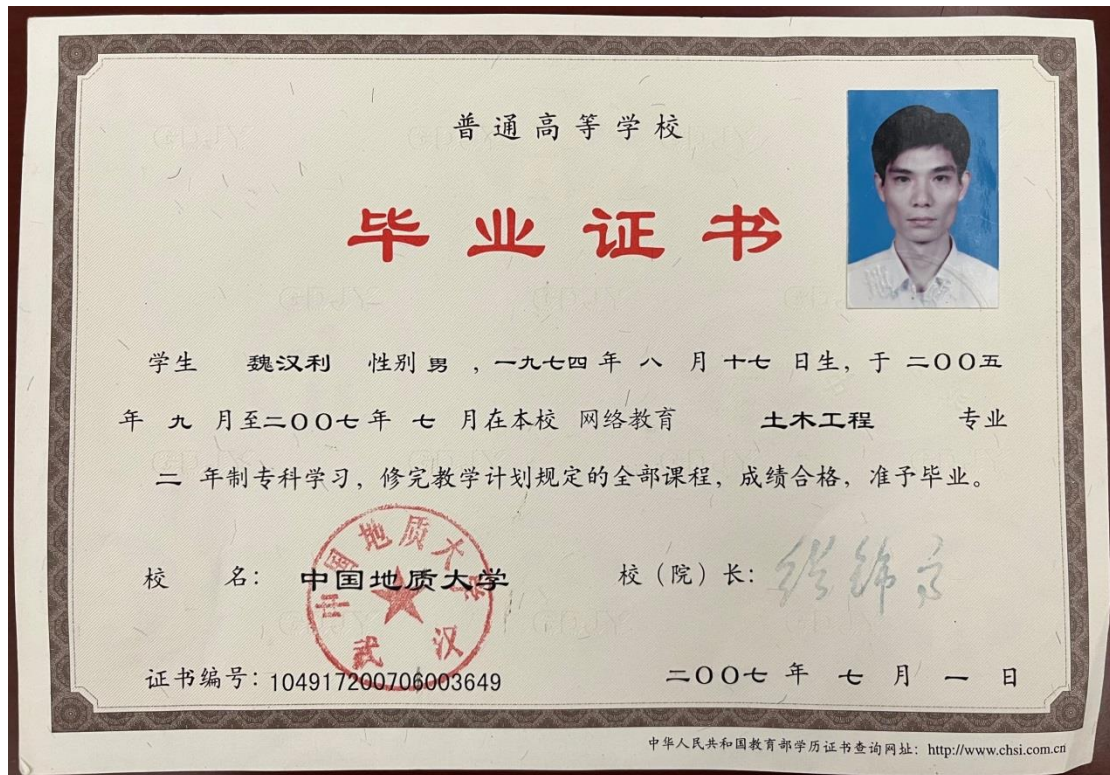 普通高等学校
毕业证书
学生 魏汉利 性别 男 ，一九七四 年 八 月 十七 日生，于 二〇〇五
年 九 月至二〇〇七 年 七 月在本校 网络教育 土木工程 专业
二 年制专科学习，修完教学计划规定的全部课程，成绩合格，准予毕业。
校 名： 中国地质大学 校（院）长：
中国地质大学
武汉
证书编号：104917200706003649 二〇〇七 年 七 月 一 日
中华人民共和国教育部学历证书查询网址：http://www.chsi.com.cn